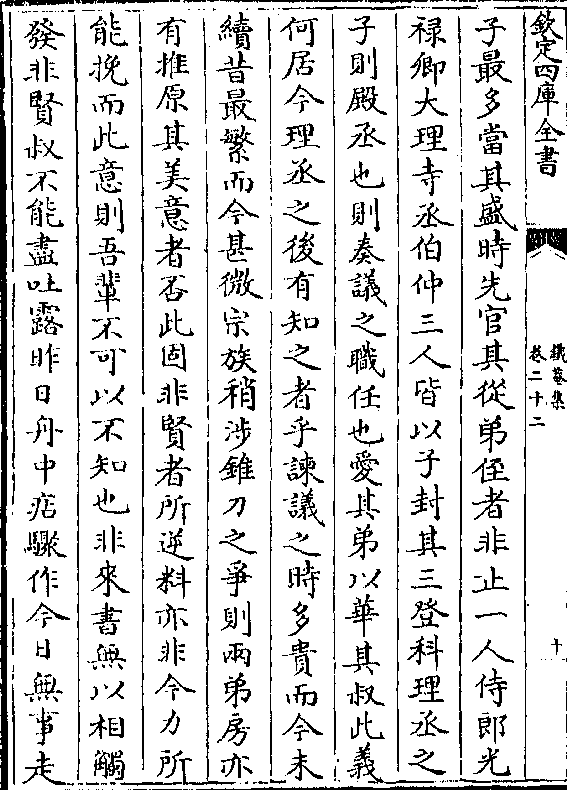 欽定四庫全書
鐵菴集
卷二十二
十
子最多當其盛時先官其從弟侄者非止一人侍郎光
禄卿大理寺丞伯仲三人皆以子封其三登科理丞之
子則殿丞也則奏議之職任也愛其弟以華其叔此義
何居今理丞之後有知之者乎諫議之時多貴而今未
續昔最繁而今甚微宗族稍涉錐刀之爭則兩弟房亦
有推原其美意者否此固非賢者所逆料亦非今力所
能挽而此意則吾輩不可以不知也非來書無以相觸
發非賢叔不能盡吐露昨日舟中痁驟作今日無事走